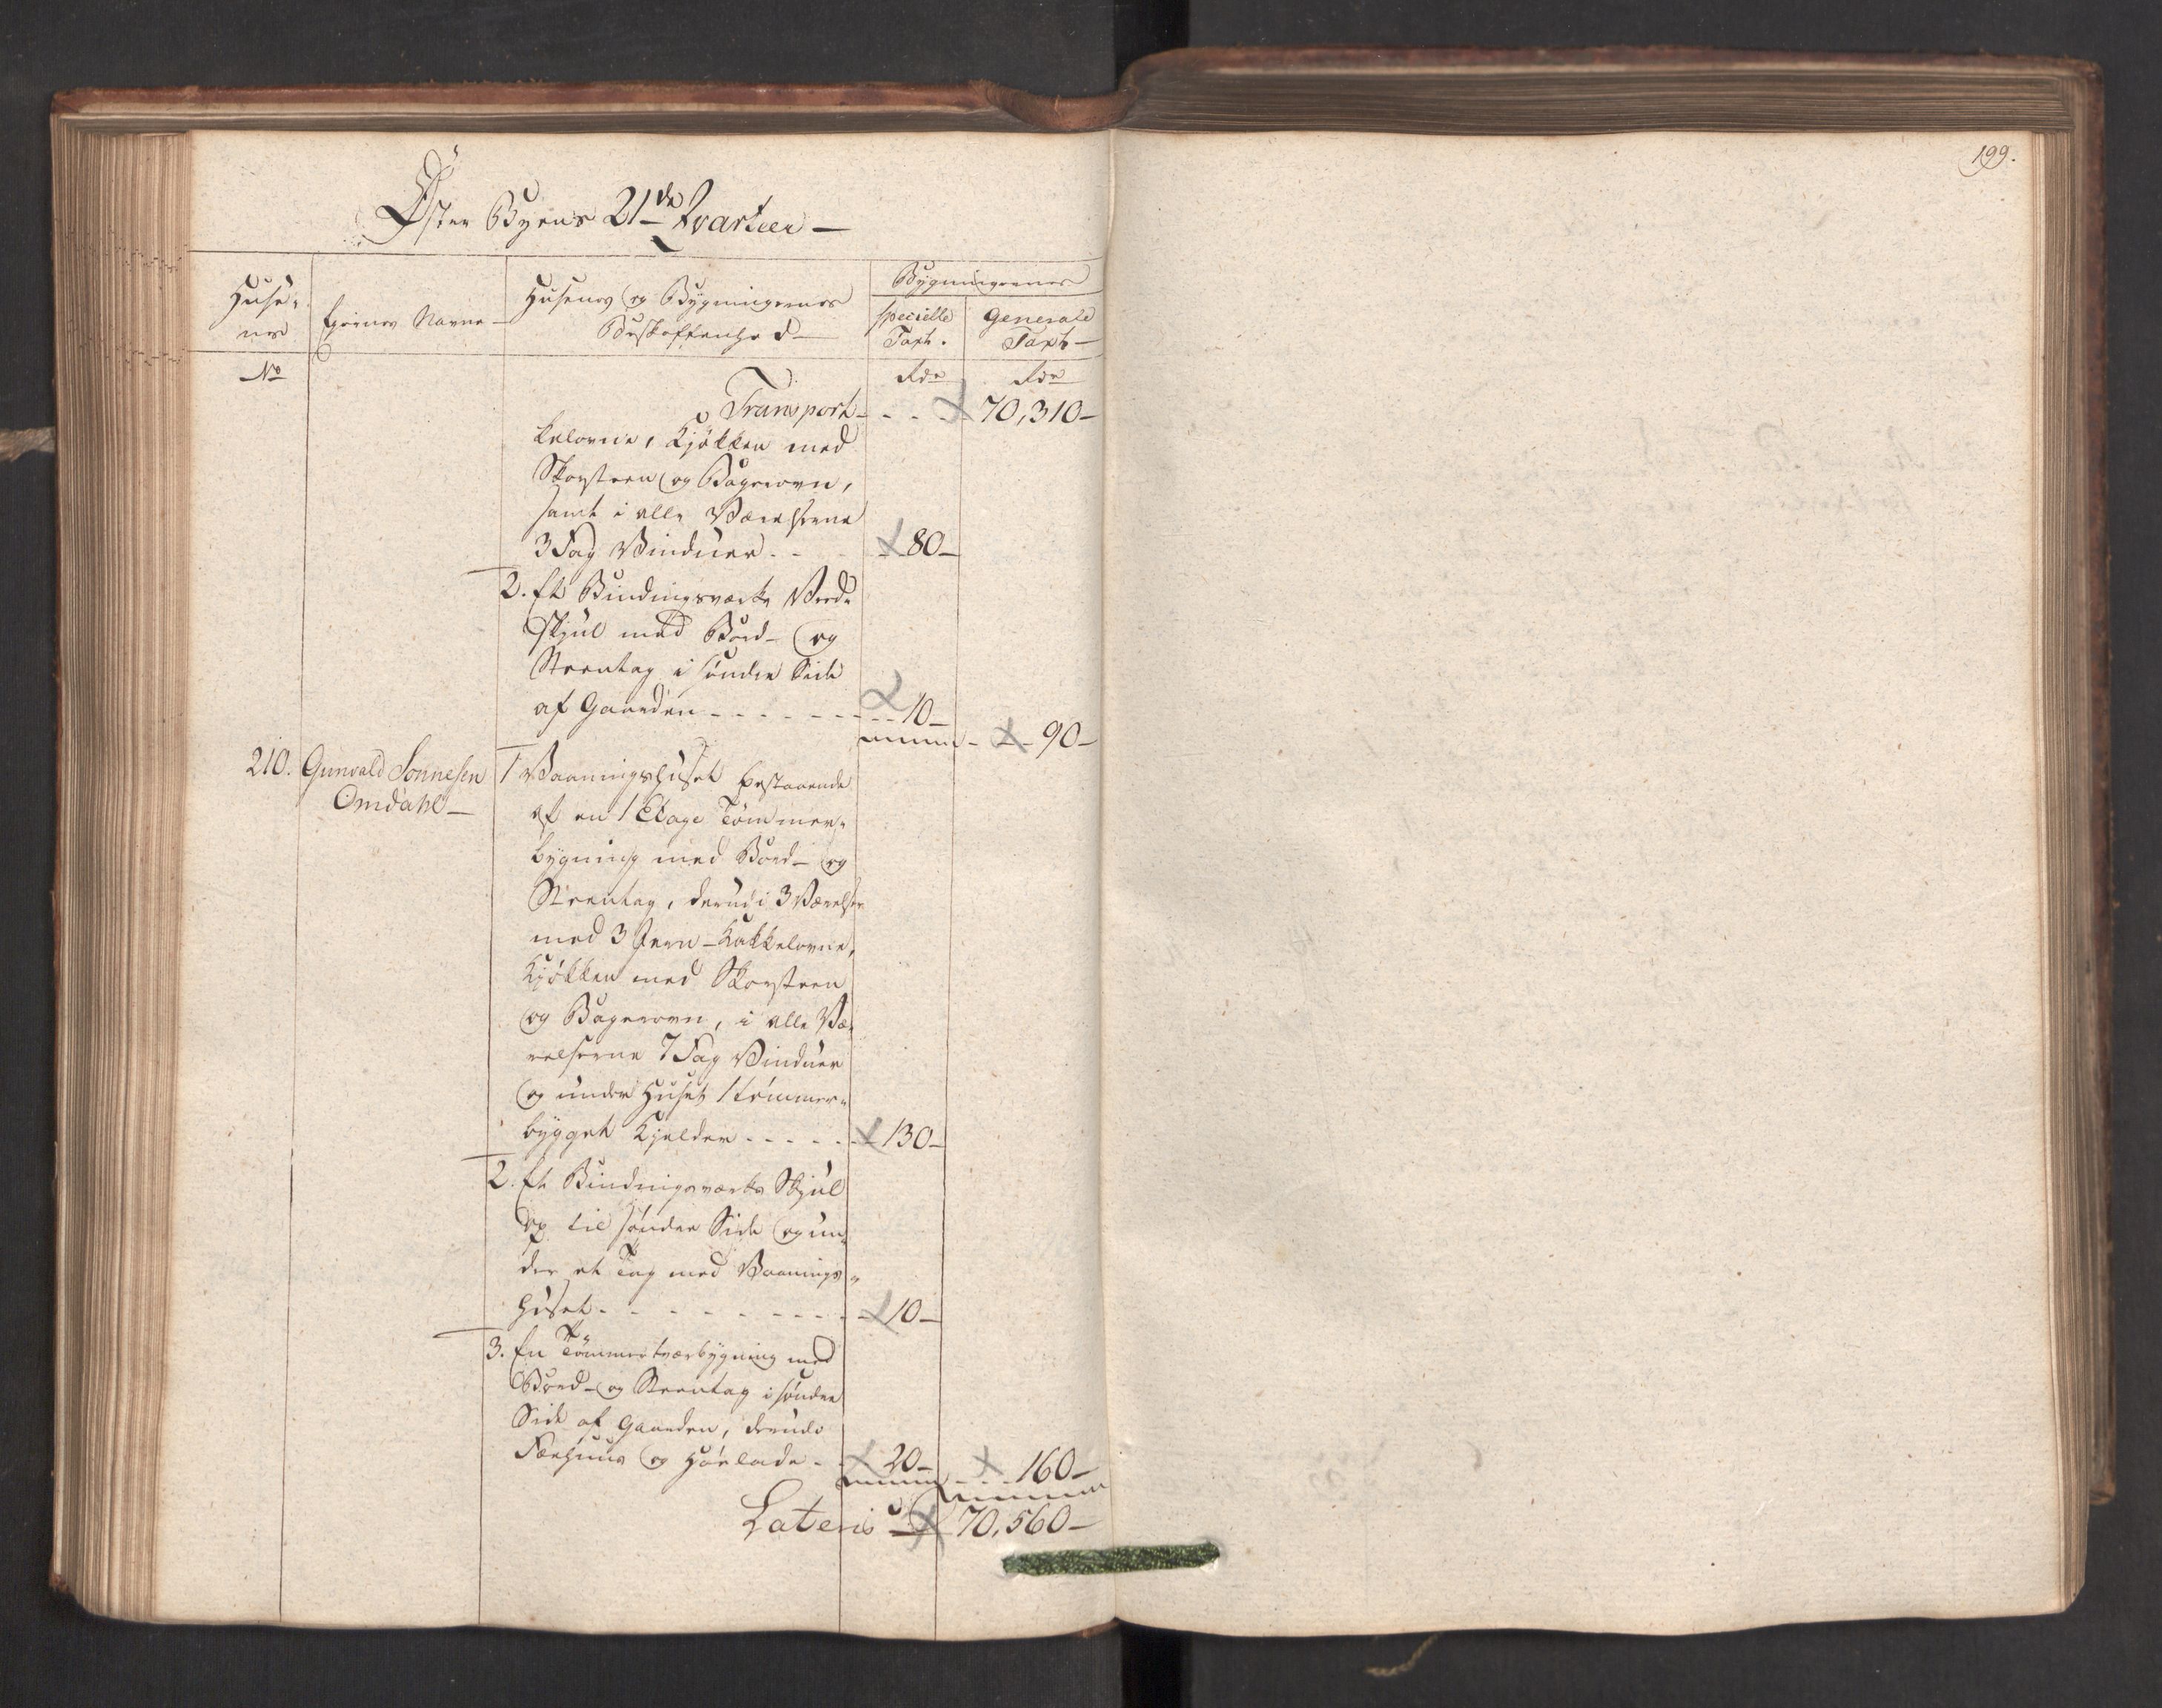 199.
Øster Byens 21de Qvarteer —
Huse-
nes
Eyernes Navne
Husenes og Bygningernes
Beskaffenhed —
Bygningernes
specielle
Taxt.
Generale
Taxt —
No
Rdr
Rdr
Transport - - - 70,310 -
kelovne, Kjøkken med
Skorsteen og Bagerovn,
samt i alle Værelserne
3 Fag Vinduer - - 80 -
2. Et Bindingsværks Vedr
skjul med Bord- og
Steentag i søndre Side
af Gaarden - - - - - - 10 -
- - 90 -
210. Gunvald Sonnesen
Omdahl —
1 Vaaningshuset bestaaende
af en 1 Etage Tømmer-
bygning med Bord- og
Steentag, derudi 3 Værelser
med 3 Jern-Kakkelovne,
Kjøkken med Skorsteen
og Bagerovn, i alle Væ-
relserne 7 Fag Vinduer
og under Huset 1 tømmer-
bygget Kjelder - - - - - 130 -
2. Et Bindingsværks Skjul
op til søndre Side og un-
der et Tag med Vaanings-
huset - - - - - - - - 10 -
3. En Tømmertværbygning med
Bord- og Steentag i søndre
Side af Gaarden, derudi
Færhuus og Høelade - 20 - - - - 160 -
Lateris - 70,560 -